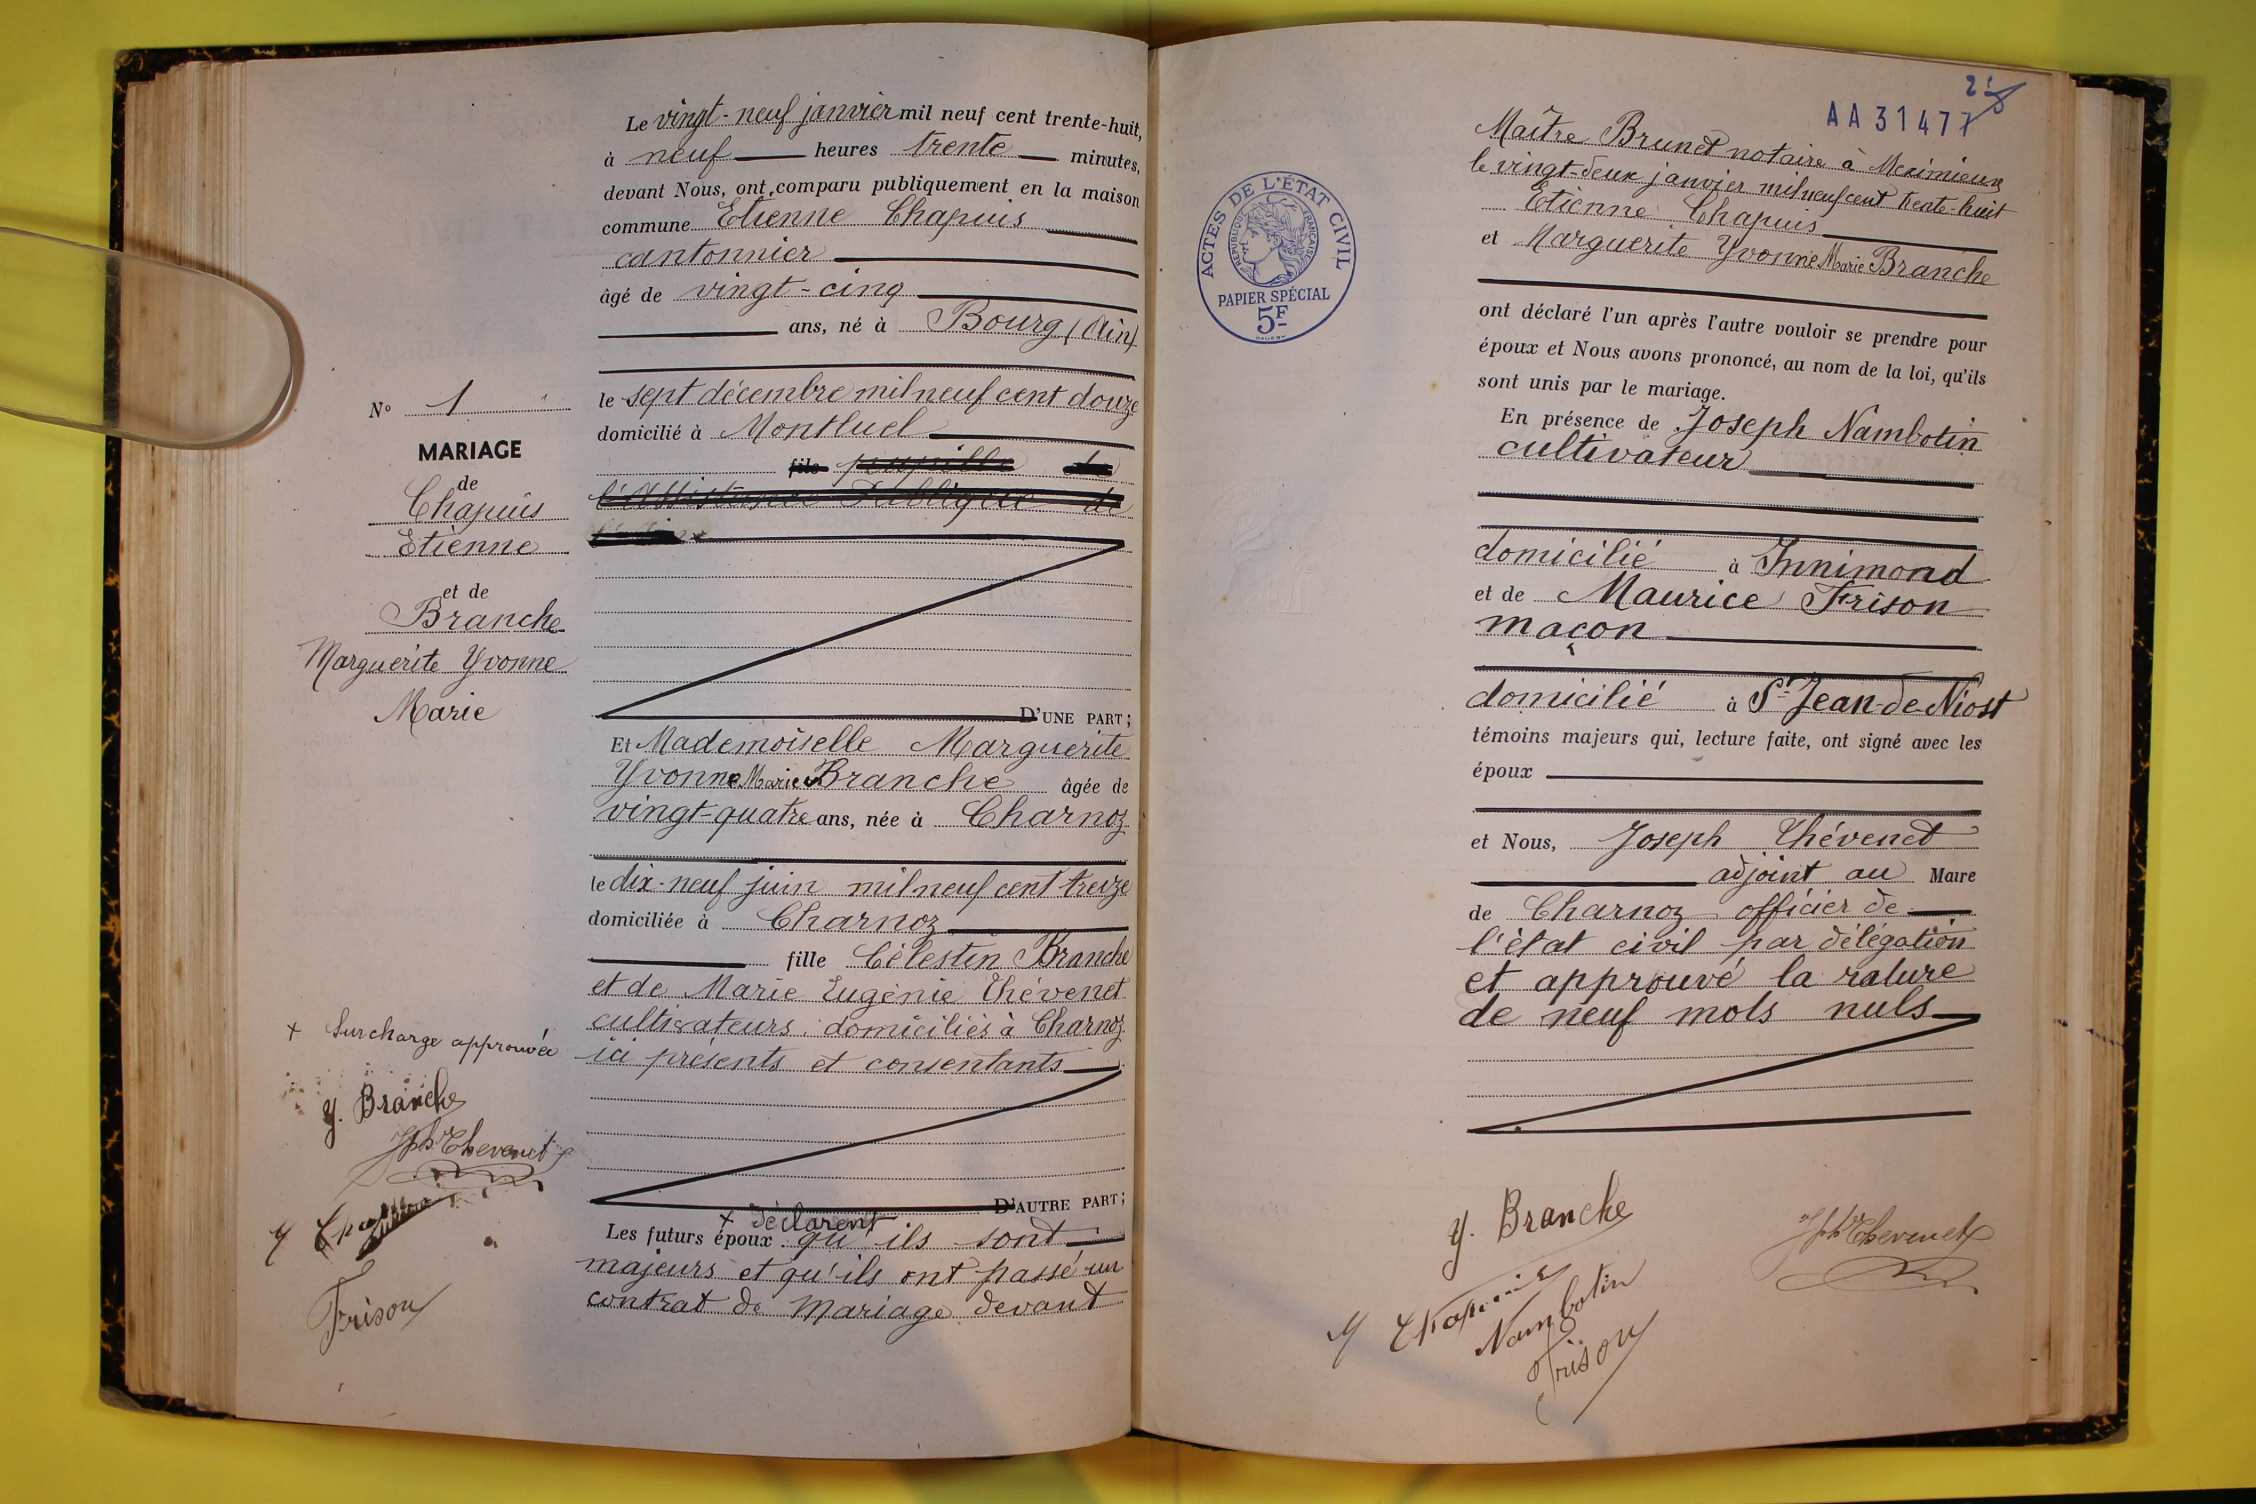 Le vingt-neuf janvier mil neuf cent trente-huit,
à neuf heures trente minutes,
devant Nous, ont comparu publiquement en la maison
commune Etienne Chapuis
cantonnier
âgé de vingt-cinq
ans, né à Bourg (Ain)
le sept décembre mil neuf cent douze
domicilié à Montluel
fils pupille de
l'Assistance Publique de
D'UNE PART;
Et Mademoiselle Marguerite
Yvonne Marie Branche âgée de
vingt-quatre ans, née à Charnoz
le dix-neuf juin mil neuf cent treize
domiciliée à Charnoz
fille Célestin Branche
et de Marie Eugénie Thévenet
cultivateurs domiciliés à Charnoz
ici présents et consentants
D'AUTRE PART;
+ déclarent
Les futurs époux qu'ils sont
majeurs et qu'ils ont passé un
contrat de mariage devant
N° 1
MARIAGE
de
Chapuis
Etienne
et de
Branche
Marguerite Yvonne
Marie
+ Surcharge approuvée
Y. Branche
Jph Thevenet
Frison
AA 31477
ACTES DE L'ÉTAT CIVIL
RÉPUBLIQUE FRANÇAISE
PAPIER SPÉCIAL
5F
Maître Brunet notaire à Meximieux
le vingt-deux janvier mil neuf cent trente-huit
Etienne Chapuis
et Marguerite Yvonne Marie Branche
ont déclaré l'un après l'autre vouloir se prendre pour
époux et Nous avons prononcé, au nom de la loi, qu'ils
sont unis par le mariage.
En présence de Joseph Nambotin
cultivateur
domicilié à Innimond
et de Maurice Frison
maçon
domicilié à St Jean-de-Niost
témoins majeurs qui, lecture faite, ont signé avec les
époux
et Nous, Joseph Thévenet
adjoint au Maire
de Charnoz officier de
l'état civil par délégation
et approuvé la rature
de neuf mots nuls
Y. Branche
Jph Thevenet
Chapuis
Nambotin
Frison